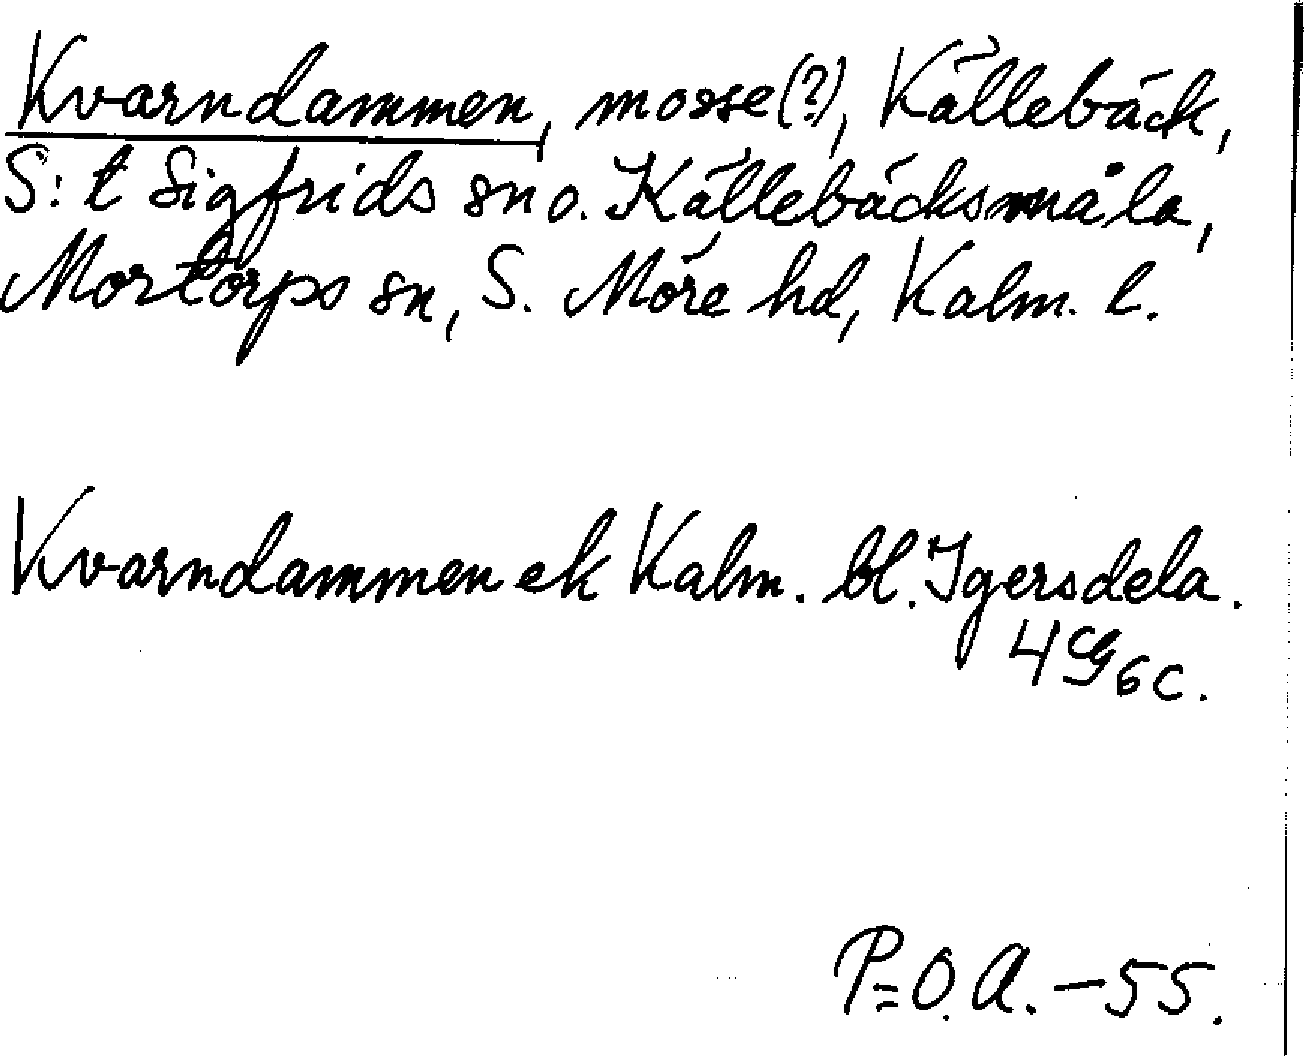 Kvarndammen, mosse(?), Källebäck,
S:t Sigfrids sn o. Källebäcksmåla,
Mortorps sn, S. Möre hd, Kalm. l.
Kvarndammen ek Kalm. bl. Igersdela.
4G6c.
P=O.A.-55.